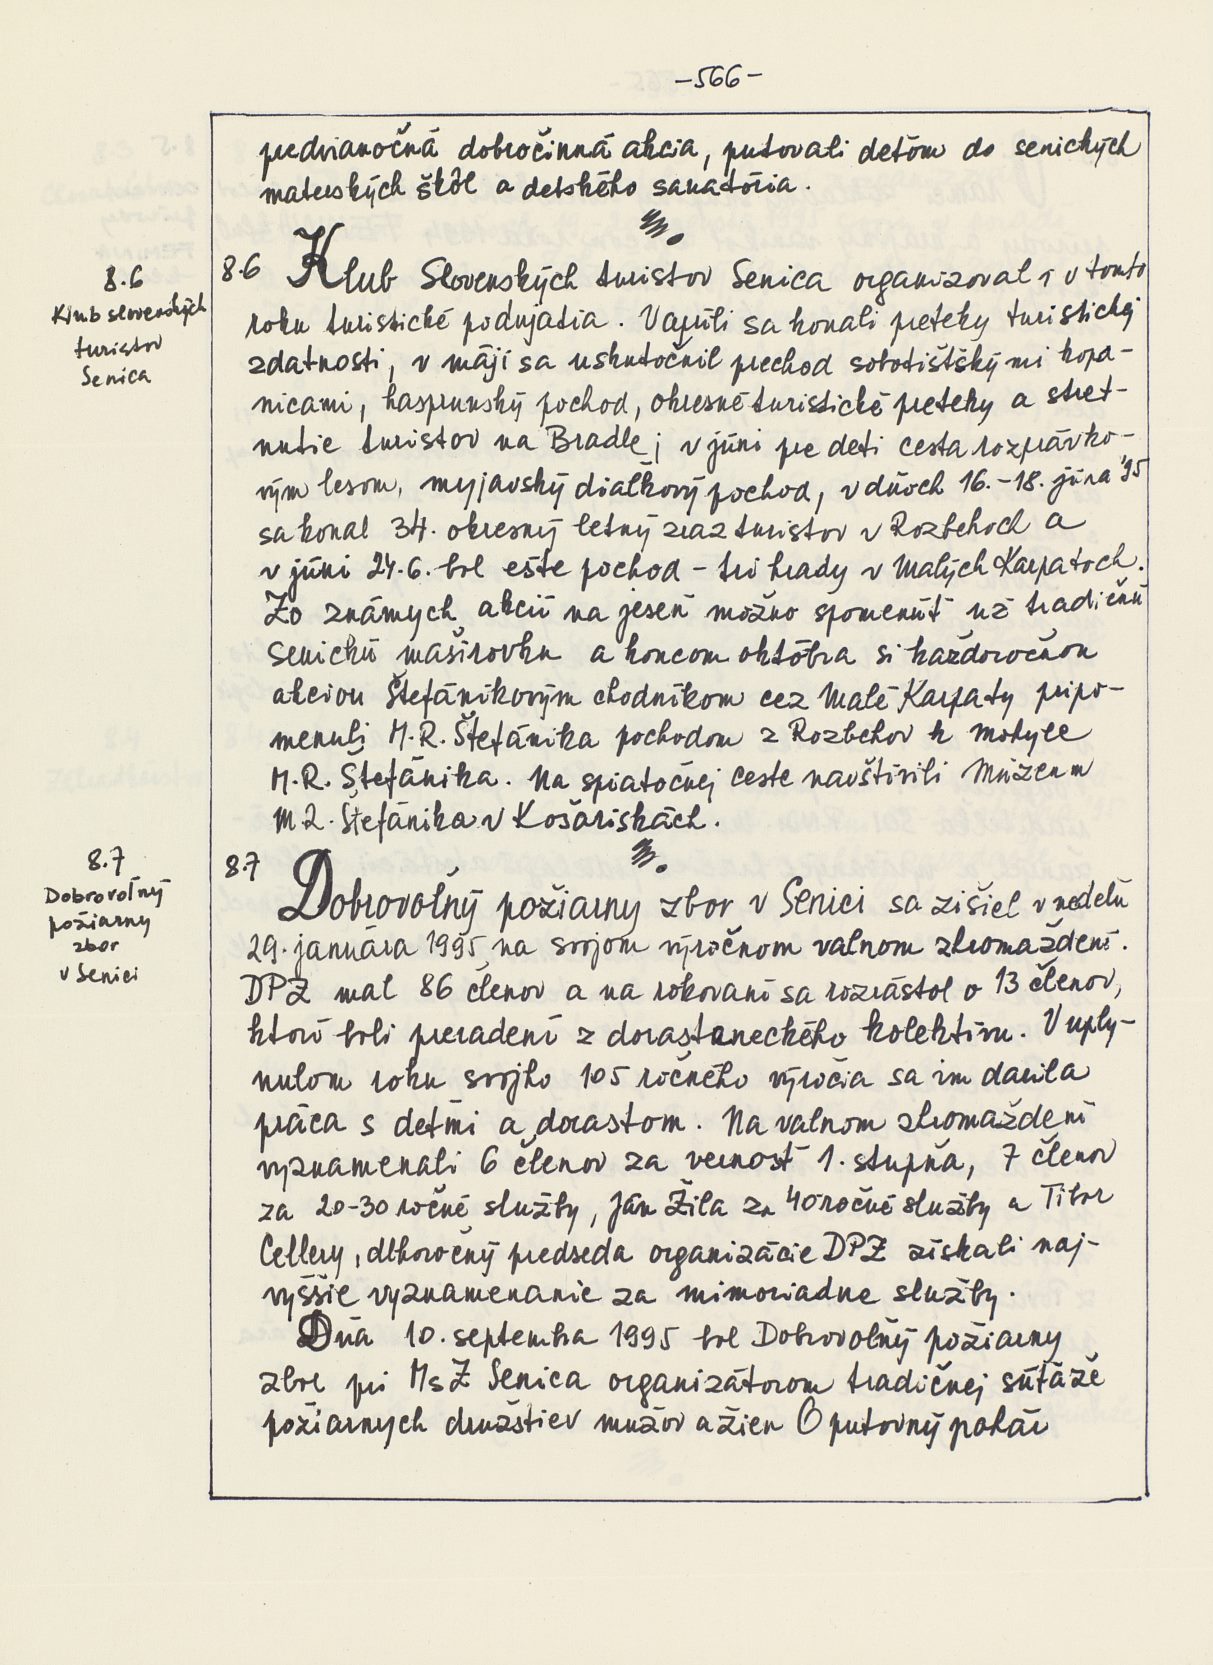 -566-
predvianočná dobročinná akcia, putovali deťom do senických
materských škôl a detského sanatória.
8.6
Klub slovenských
turistov
Senica
8.6 Klub Slovenských turistov Senica organizoval i v tomto
roku turistické podujatia. V apríli sa konali preteky turistickej
zdatnosti, v máji sa uskutočnil prechod sobotištskými kopa-
nicami, hasprunský pochod, okresné turistické preteky a stret-
nutie turistov na Bradle; v júni pre deti cesta rozprávko-
vým lesom, myjavský diaľkový pochod, v dňoch 16.-18. júna '95
sa konal 34. okresný letný zraz turistov v Rozbehoch a
v júni 24.6. bol ešte pochod - tri hrady v Malých Karpatoch.
Zo známych akcií na jeseň možno spomenúť už tradičnú
Senickú maširovku a koncom októbra si každoročnou
akciou Štefánikovým chodníkom cez Malé Karpaty pripo-
menuli M.R. Štefánika pochodom z Rozbehov k mohyle
M.R. Štefánika. Na spiatočnej ceste navštívili Múzeum
M.R. Štefánika v Košariskách.
8.7
Dobrovoľný
požiarny
zbor
v Senici
8.7 Dobrovoľný požiarny zbor v Senici sa zišiel v nedeľu
29. januára 1995 na svojom výročnom valnom zhromaždení.
DPZ mal 86 členov a na rokovaní sa rozrástol o 13 členov,
ktorí boli preradení z dorasteneckého kolektívu. V uply-
nulom roku svojho 105 ročného výročia sa im darila
práca s deťmi a dorastom. Na valnom zhromaždení
vyznamenali 6 členov za vernosť 1. stupňa, 7 členov
za 20-30 ročné služby, Ján Žila za 40 ročné služby a Tibor
Cellery, dlhoročný predseda organizácie DPZ získali naj-
vyššie vyznamenanie za mimoriadne služby.
Dňa 10. septembra 1995 bol Dobrovoľný požiarny
zbor pri MsZ Senica organizátorom tradičnej súťaže
požiarnych družstiev mužov a žien O putovný pohár